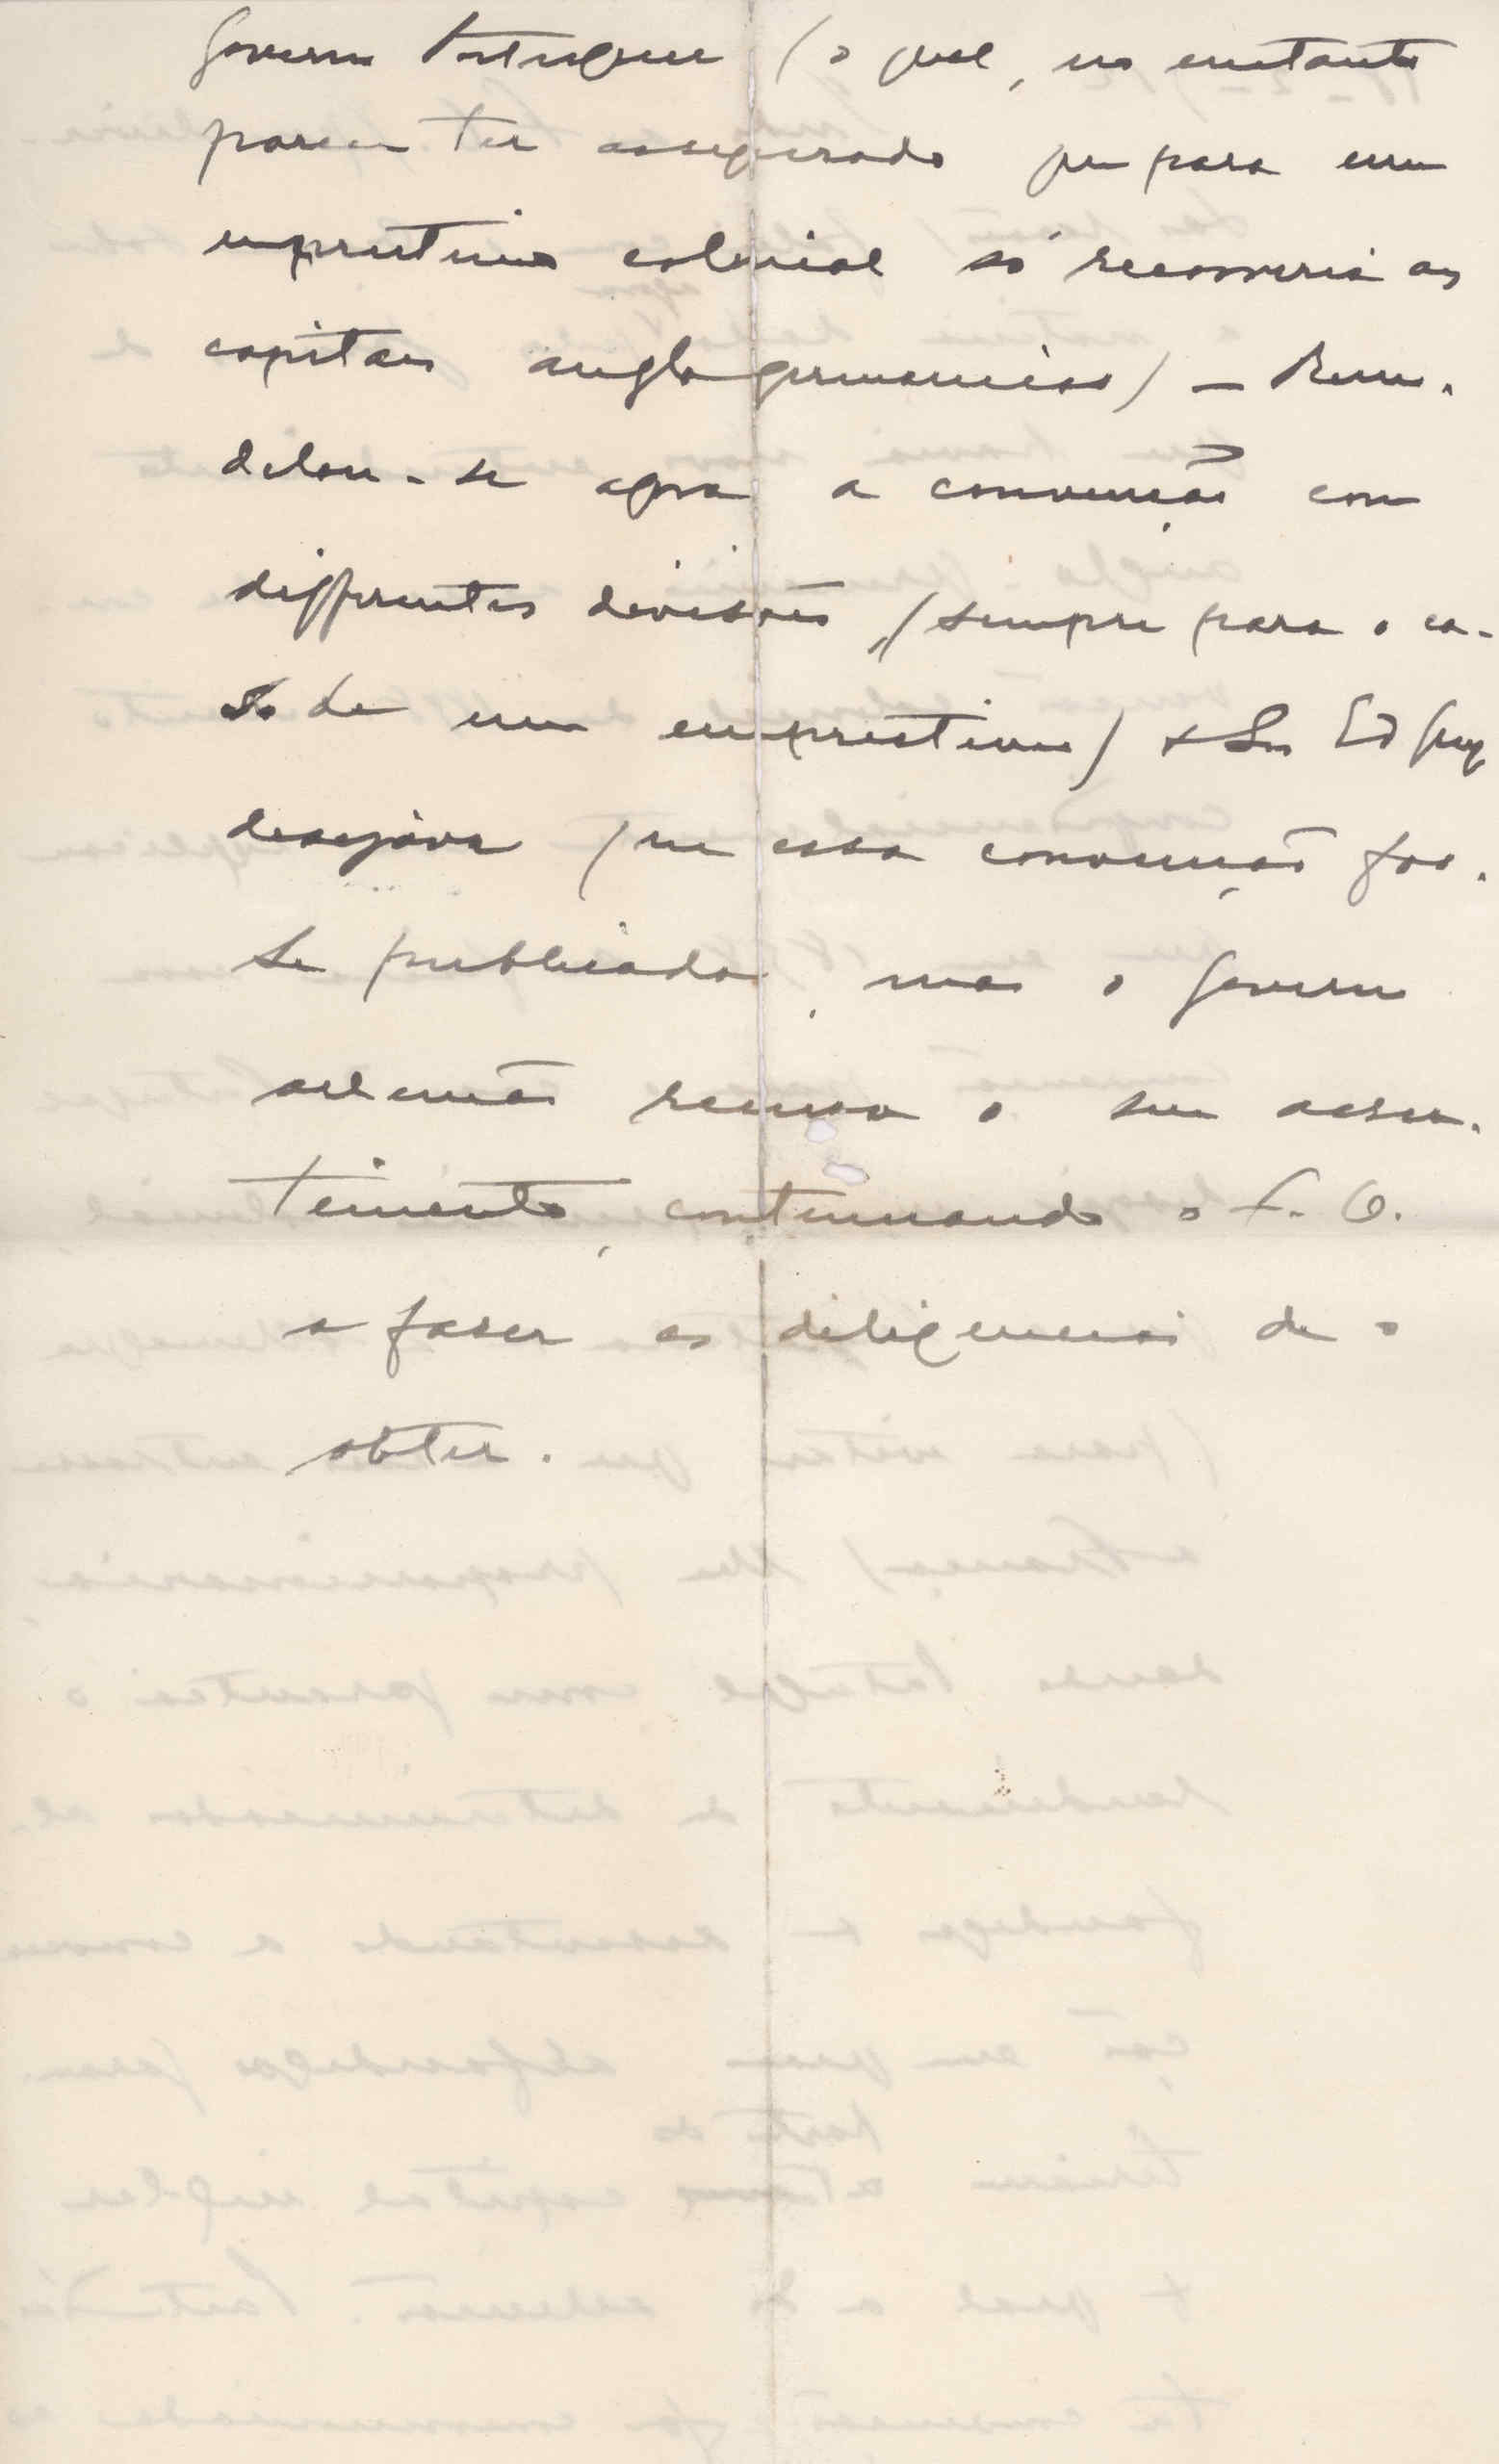 Governo Portuguez (o qual, no emtanto
parece ter assegurado que para um
emprestimo colonial só recorreria aos
capitaes anglo germanicos) – Remo-
delou-se agora a convenção com
differentes divisões, (sempre para o ca-
so de um emprestimo) e Sir Ed Grey
desejava que essa convenção fos-
se publicada, mas o Governo
allemão recusa o seu assen-
timento, continuando o F. O.
a fazer as diligencias de o
obter.